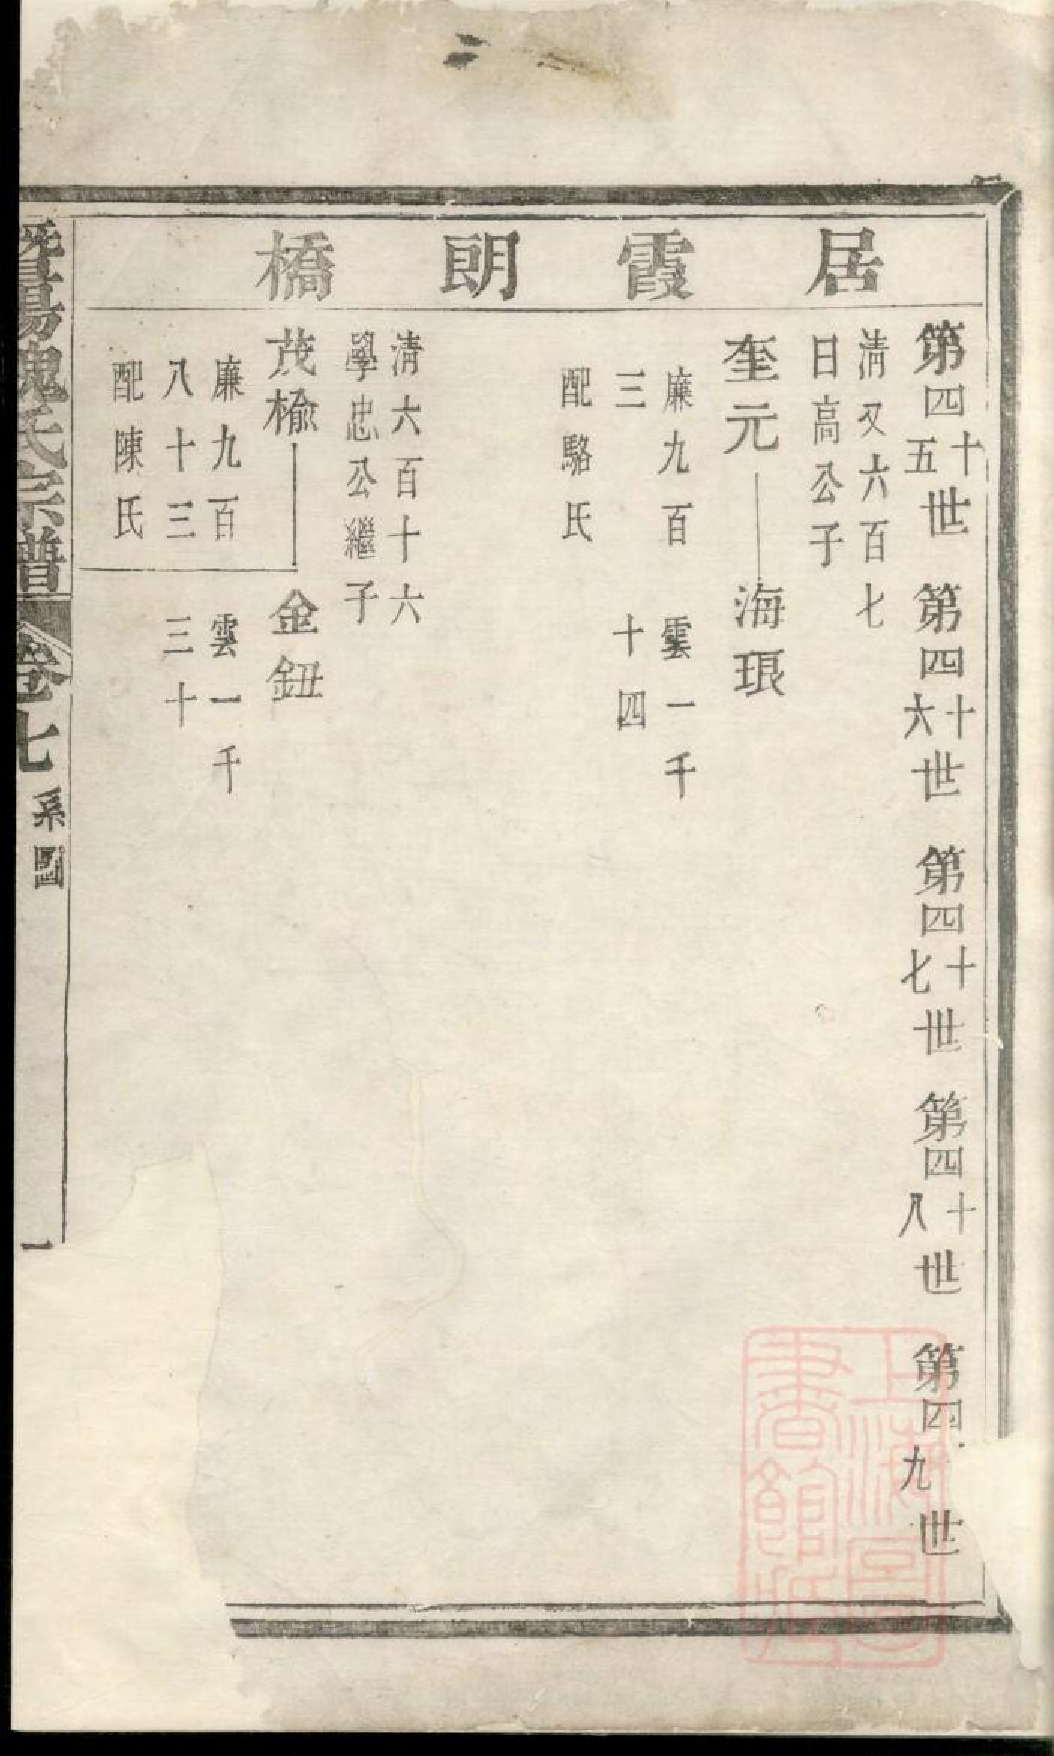 居霞朗橋
第四十五世 第四十六世 第四十七世 第四十八世 第四九世
清又六百七
日高公子
奎元 海琅
廉九百 雲一千
三 十四
配駱氏
清六百十六
學忠公繼子
茂榆 金鈕
廉九百 雲一千
八十三 三十
配陳氏
暨陽魏氏宗譜 卷七 系圖 一
上海圖
書館